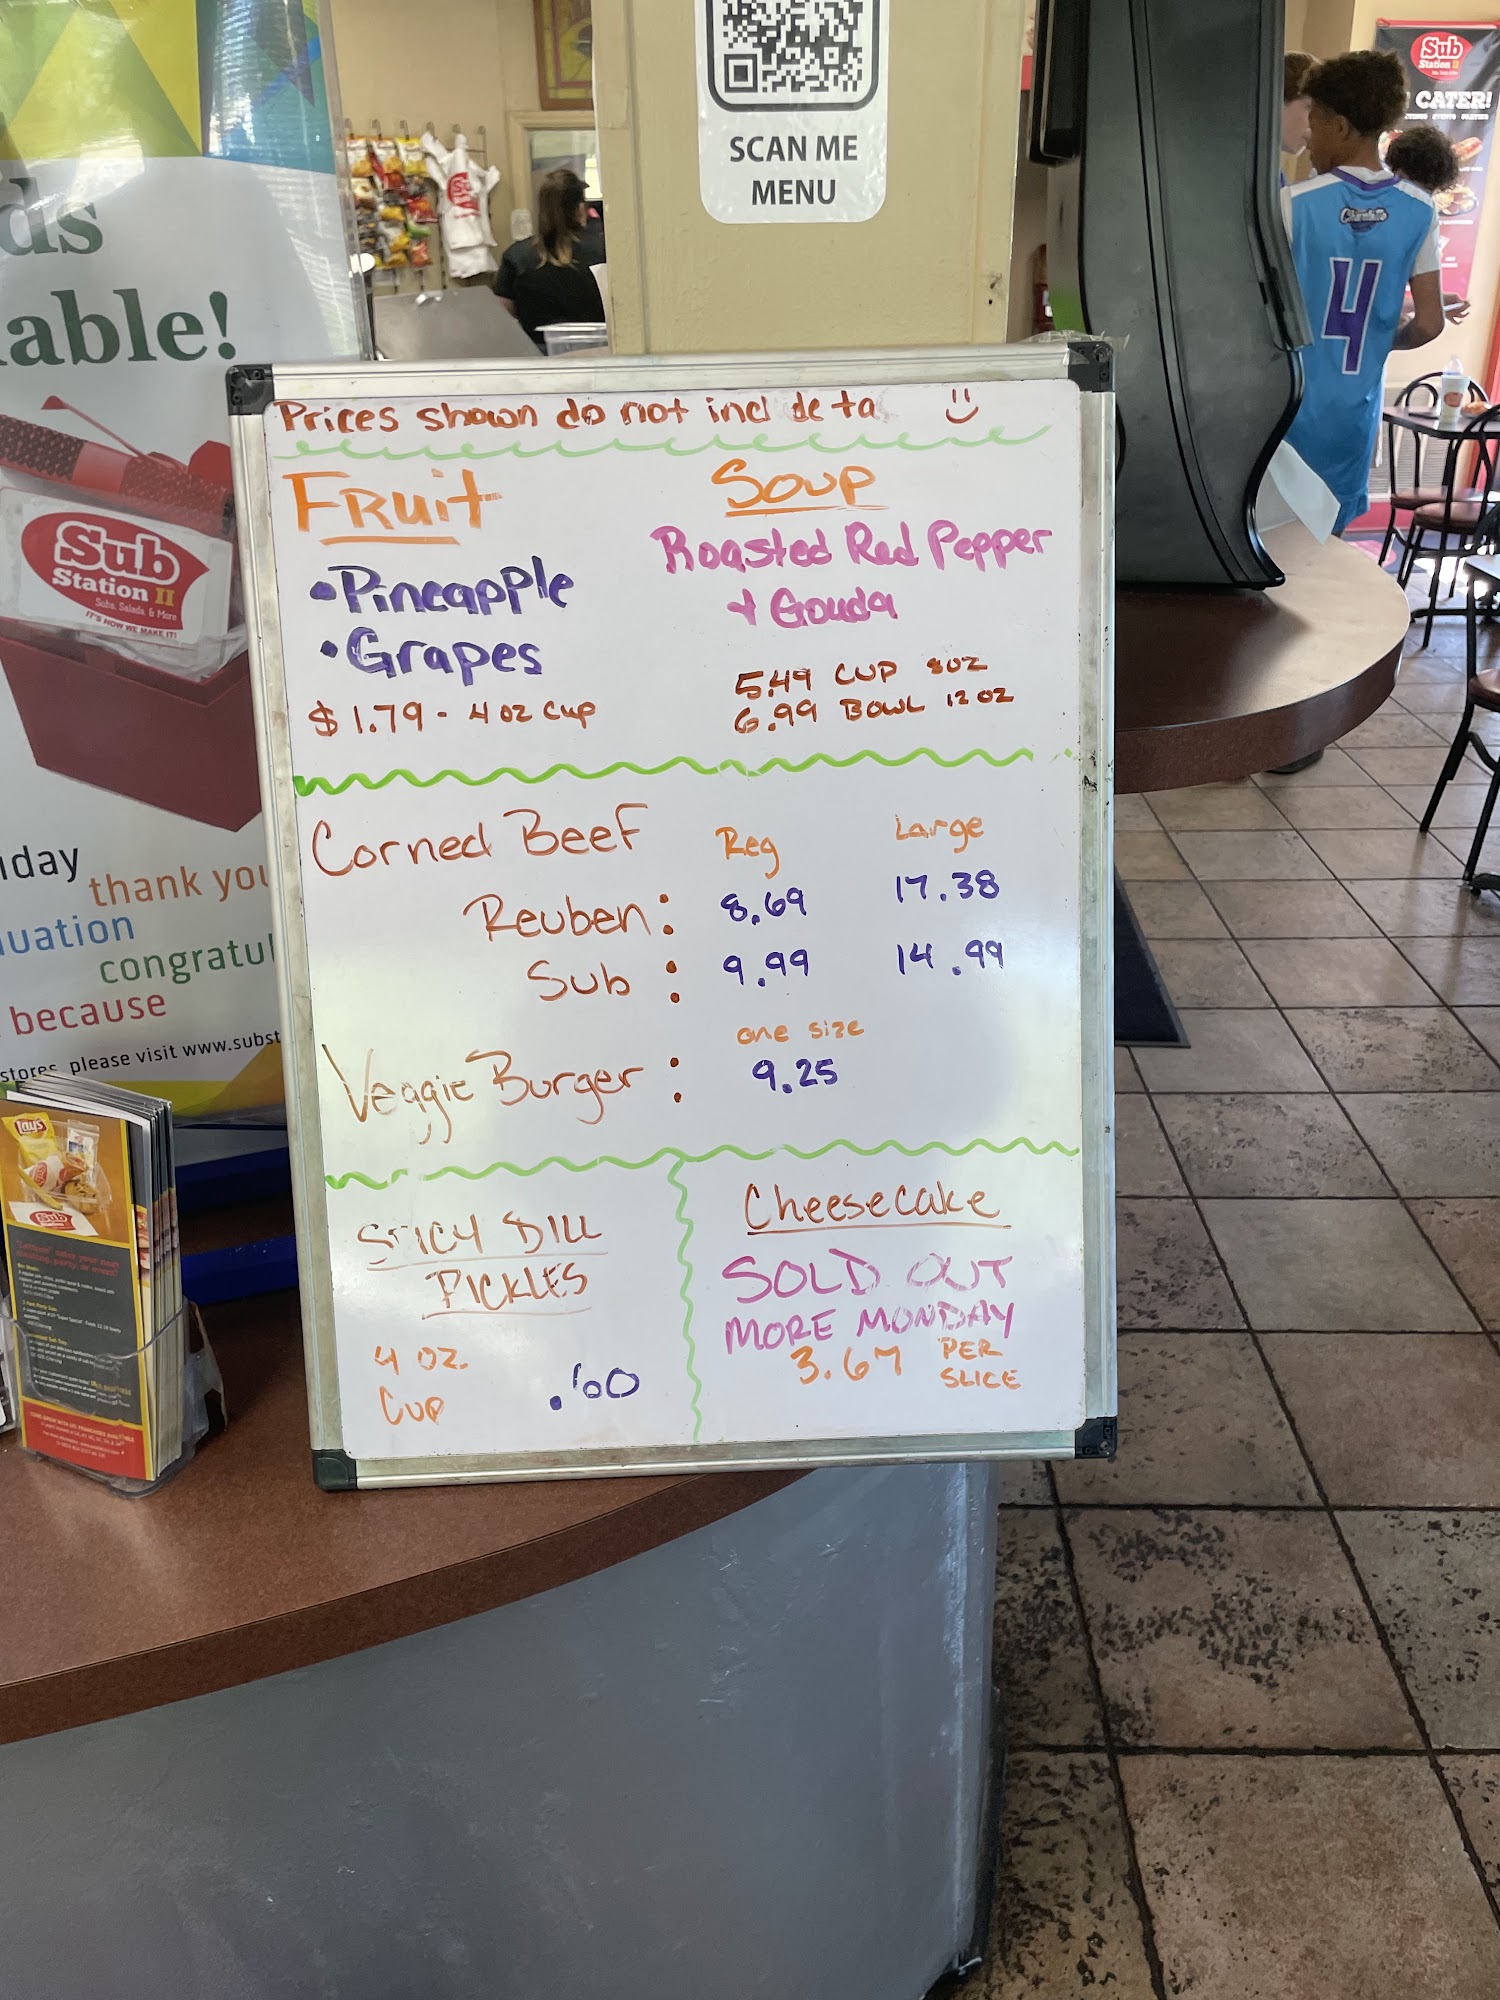 SCAN ME
MENU
Sub
Station II
CATER!
4
ds
able!
Sub
Station II
Subs, Salads, & More
IT'S HOW WE MAKE IT!
day
thank you
uation
congratul
because
stores, please visit www.subst
Lay's
Sub
Prices shown do not incl de ta
FRuit
•Pineapple
•Grapes
$1.79 - 4 oz Cup
Soup
Roasted Red Pepper
+ Gouda
5.49 CUP 8oz
6.99 BOWL 12 oz
Corned Beef Reg Large
Reuben: 8.69 17.38
Sub : 9.99 14.99
one size
Veggie Burger : 9.25
SPICY DILL
PICKLES
4 oz.
Cup .60
CheeseCake
SOLD OUT
MORE MONDAY
3.67 PER
SLICE